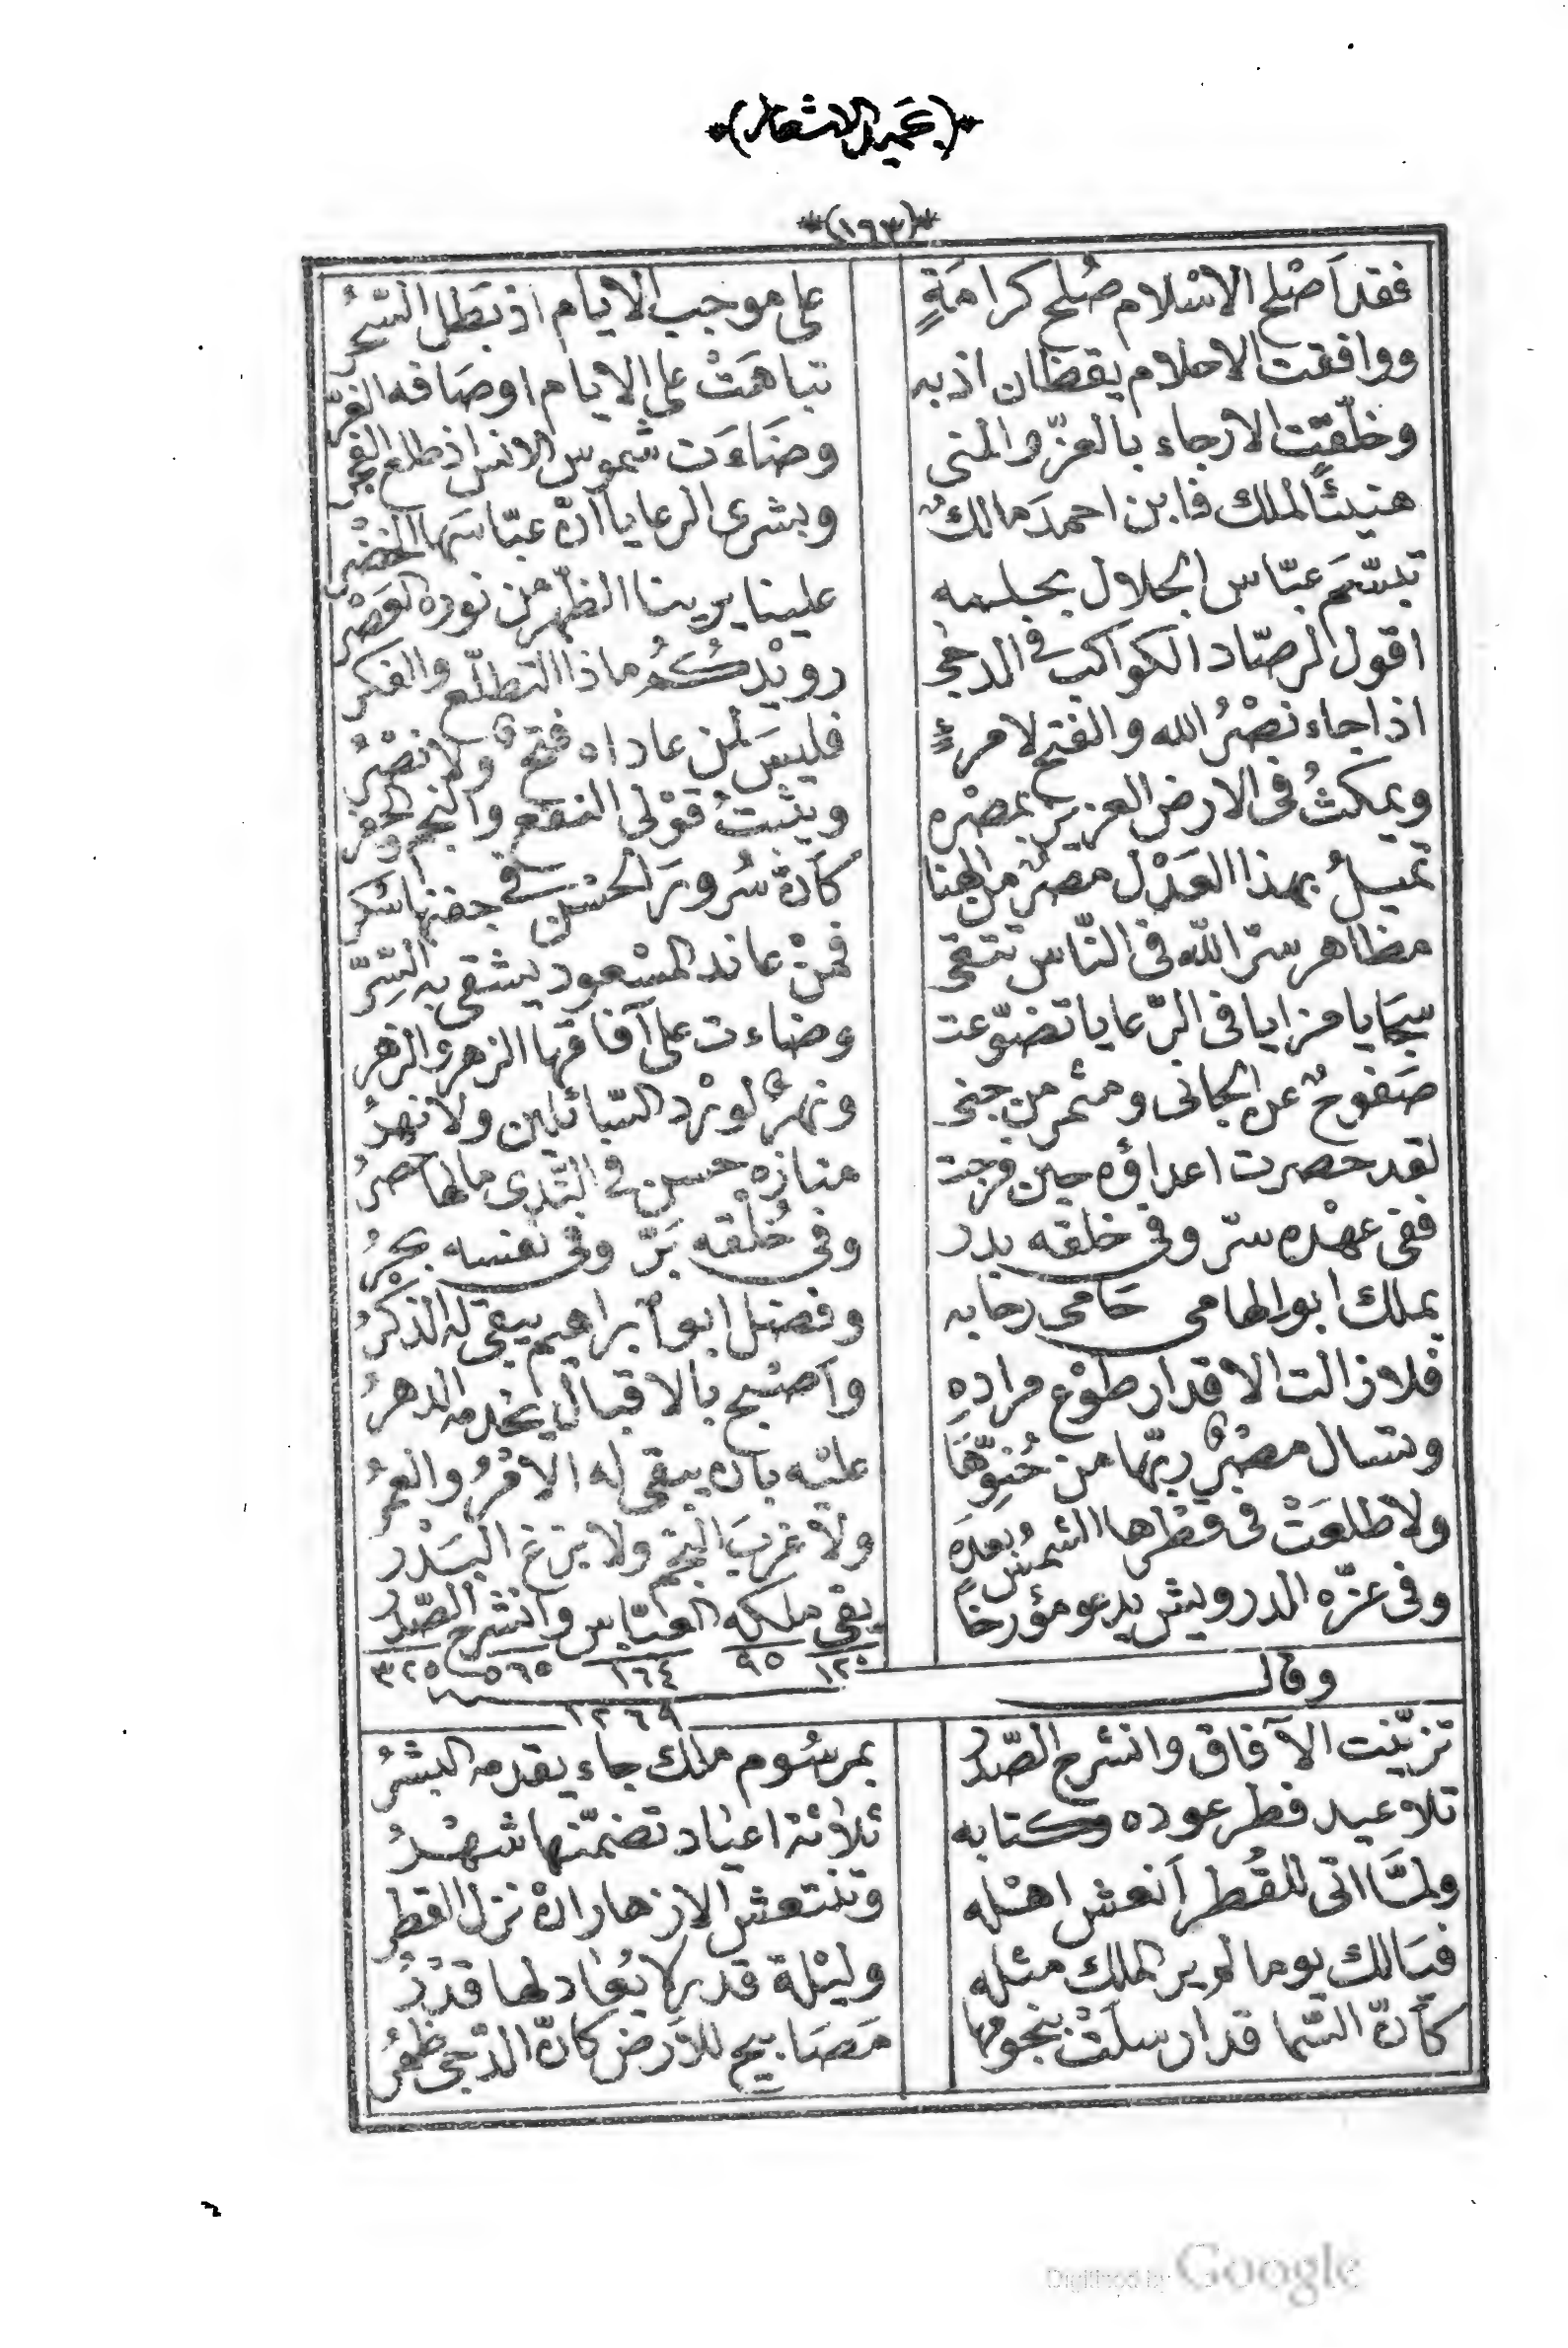 *(بحميد الاشعار)*
*(١٩٣)*
فقد اَصْلح الاسْلام صُلح كرامَةٍ على موجب الايام اذ بَطل السّحرُ
ووافقت الاحلام يقظان اذ به تباهَتْ على الايام اوصَافه الغرّ
وخلّقت الارجاء بالعزّ والمنى وضَاءَت شموس الانس اذ طلع الفجر
هنيئاً لملك فابن احمدَ مالكٌ وبشرى الرعايا انّ عبّاسَها الخضْر
تبسّمَ عبّاس الجلال بجلسه علينا يرينا الظّهر من نوره العَصْر
اقول لرصّاد الكواكب فى الدجى رويْدكُمُ ماذا التطلّع والفكر
اذا جاء نصْرُ الله والفتح لامرءٍ فليسَ لمن عاداه فتحٌ ولا نصْرُ
ويمكثُ فى الارض العزيز بمصْره ويثبتُ قوْلى النفع والنجم والفجر
تميلُ بهذا العَدْل مصرٌ من الهنا كأنّ سُرورَ الحسْن فى جفنها سُكر
مظاهر سرّ الله فى النّاس تتقى فمنْ عاند المسْعود يشقى به السِّرّ
سجَايا مزايا فى الرّعايا تضوّعت وضاءت على آفاقها الزهر والزهر
صَفوحٌ عن الجانى ومثمر من جنى ونهرٌ لورْد السّائلين ولا نهرُ
لقد حصرت اعداؤه حين فرجت منازه حسن فى النّدى مالها حصرُ
ففى عهْده سرّ وفى خلقه بدر وفى خُلْقه بَرّ وفى نفسه بحرُ
بملك ابو الهامى حَامى رحابه وفضل ابو ابراهيم يبقى له الذكْرُ
فلا زالت الاقدار طوْع مرادهِ وَاَصْبح بالاقبال يخدمه الدهرُ
وتسال مصْرٌ ربّها من حُنِوِّهَا عليْه بان يبقى له الامْرُ والعمرُ
ولا طلعَتْ فى قطْرها الشمسُ بعدَه ولا غربَ النجم ولا بزغ البَدْر
وفى عزّه الدرويش يدعو مؤرخاً يبقى ملكه العبّاس وانشرح الصّدر
١٢٠ ٩٥ ١٦٤ ٥٦٥ ٣٢٥
وقال
١٢٦٩
تزيّنت الآفاق وانشرح الصّدرُ بمرسُوم ملك جاء يقدمه البشرُ
تلا عيد فطر عوده وكتابه ثلاثة اعياد تضمّنها شهْرُ
ولمّا اتى للقُطر اَنعش اهْله وتنتعش الازهار انْ نزل القطر
فيَالك يوما لم ير الملك مثله وليْلة قدر لا يُعَادلها قدْرُ
كأنّ السّما قد ارسلَتْ بنجومها مَصَابيح للأرض كانّ الدّجى ظهرُ
Digitized by Google